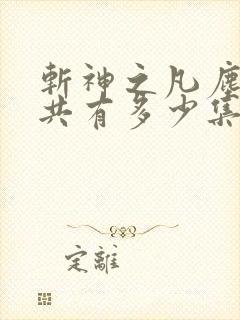 斩神之凡尘
共有多少集
定離